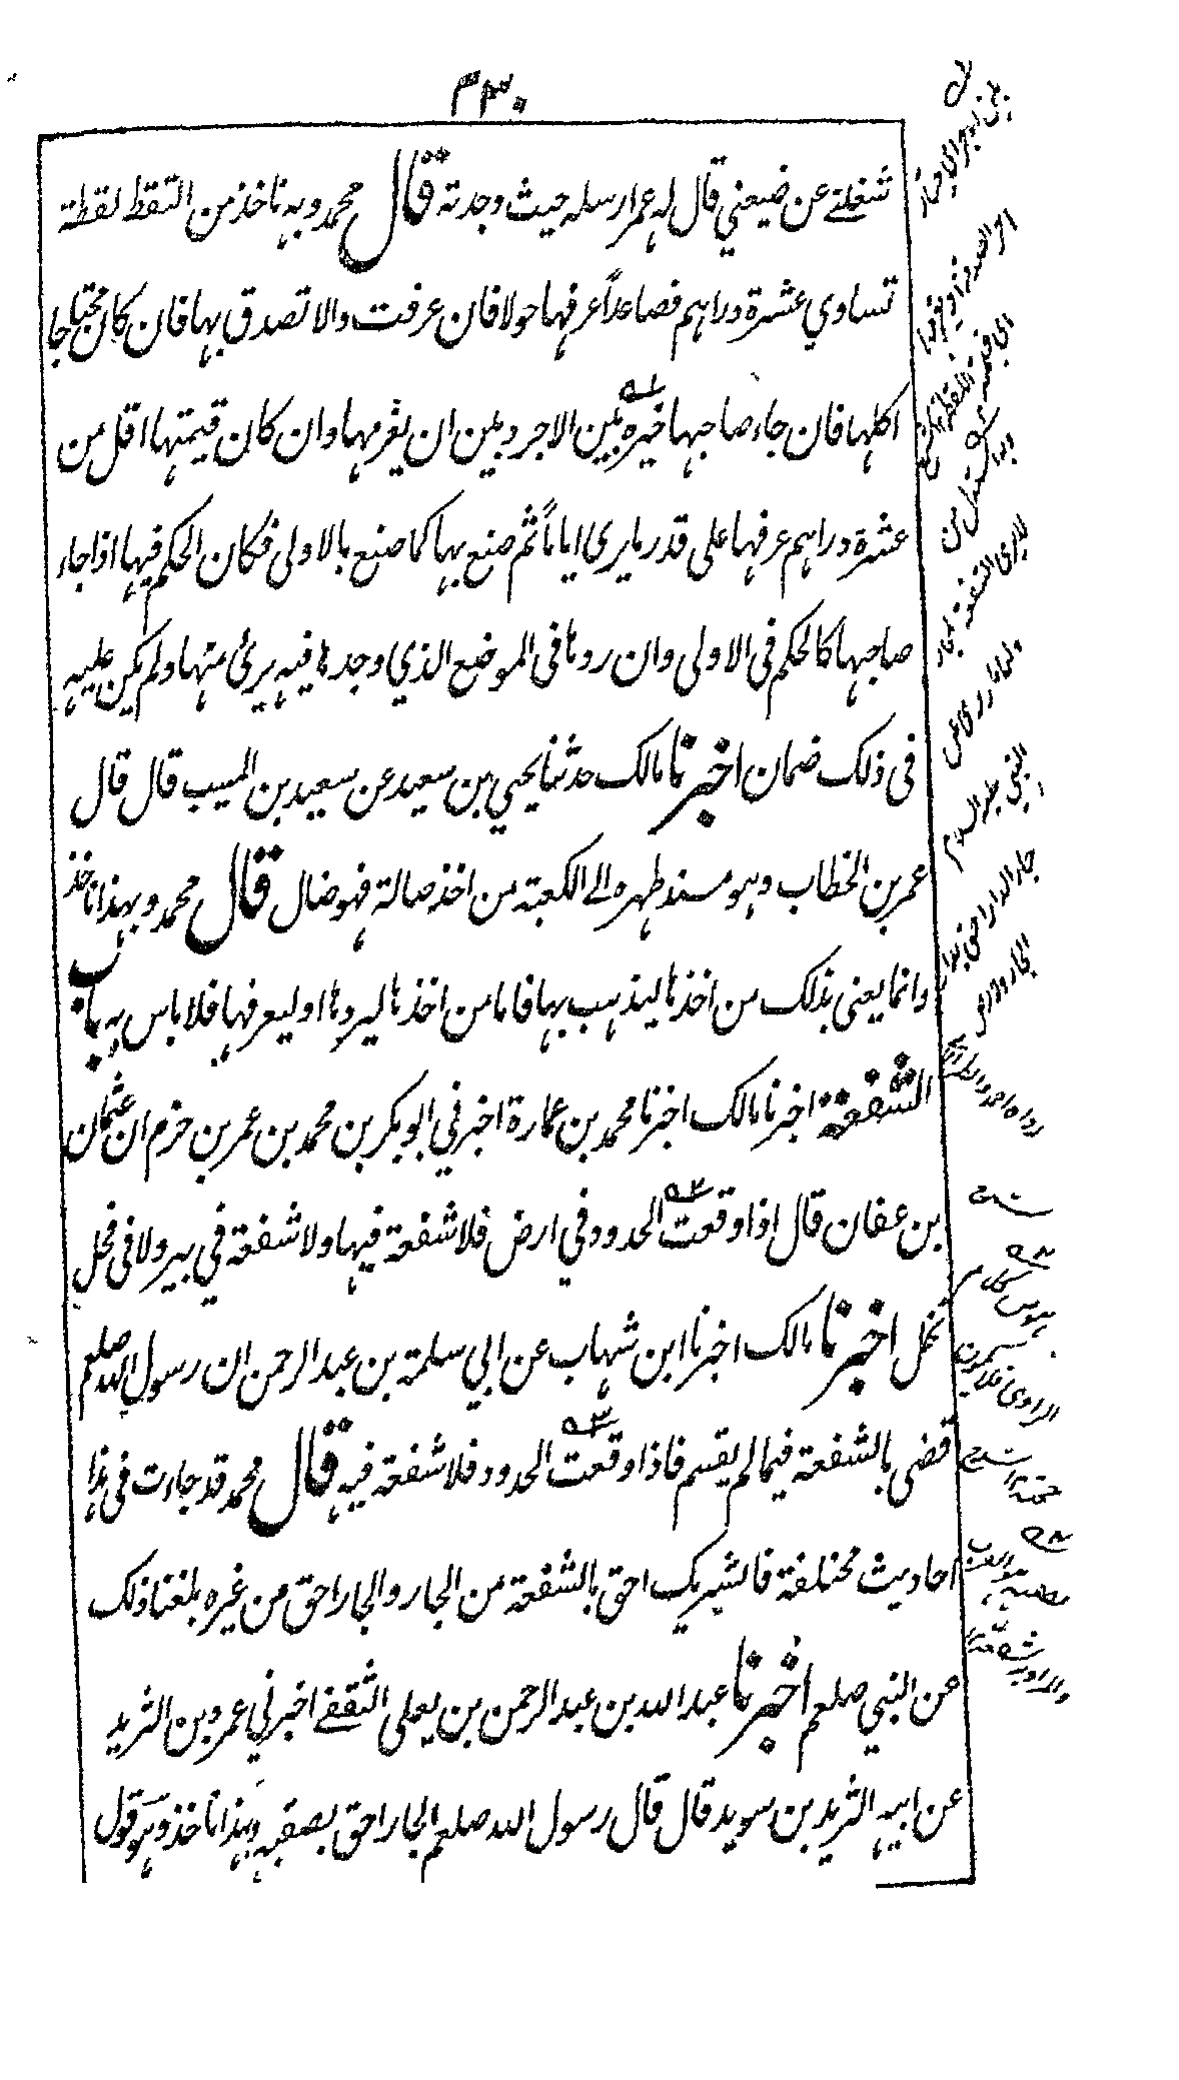 ٤٣٠
شغلتني عن ضيعتي قال له عمر ارسله حيث وجدته قال محمد وبه ناخذ من التقط لقطة
تساوي عشرة دراهم فصاعداً عرفها حولا فان عرفت والا تصدق بها فان كان محتاجا
اكلها فان جاء صاحبها خيره بين الاجر وبين ان يغرمها وان كان قيمتها اقل من
عشرة دراهم عرفها على قدر ما يرى اياماً ثم صنع بها كما صنع بالاولى فكان الحكم فيها اذا جاء
صاحبها كالحكم في الاولى وان ردها في الموضع الذي وجدها فيه برئ منها ولم يكن عليه
في ذلك ضمان اخبرنا مالك حدثنا يحيي بن سعيد عن سعيد بن المسيب قال قال
عمر بن الخطاب وهو مسند ظهره الے الكعبة من اخذ ضالة فهو ضال قال محمد وبهذا ناخذ
وانما يعنى بذلك من اخذها ليذهب بها فاما من اخذها ليردها او ليعرفها فلا باس به باب
الشفعة اخبرنا مالك اخبرنا محمد بن عمارة اخبرني ابو بكر بن محمد بن عمر بن حزم ان عثمان
بن عفان قال اذا وقعت الحدود في ارض فلا شفعة فيها ولا شفعة في بير ولا في فحل
نخل اخبرنا مالك اخبرنا ابن شهاب عن ابي سلمة بن عبد الرحمن ان رسول الله صلعم
قضى بالشفعة فيما لم يقسم فاذا وقعت الحدود فلا شفعة فيه قال محمد قد جاءت في هذا
احاديث مختلفة فالشريك احق بالشفعة من الجار والجار احق من غيره بلغنا ذلك
عن النبي صلعم اخبرنا عبد الله بن عبد الرحمن بن يعلى الثقفے اخبرني عمرو بن الشريد
عن ابيه الشريد بن سويد قال قال رسول الله صلعم الجار احق بصقبه وبهذا ناخذ وهو قول
النبي عليه السلام
جار الدار احق بدار
الجار